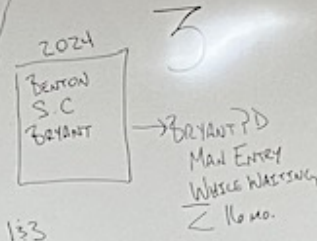 3
2024
BENTON
S.C
BRYANT
→ BRYANT PD
MAN ENTRY
WHILE WAITING
< 16 mo.
133